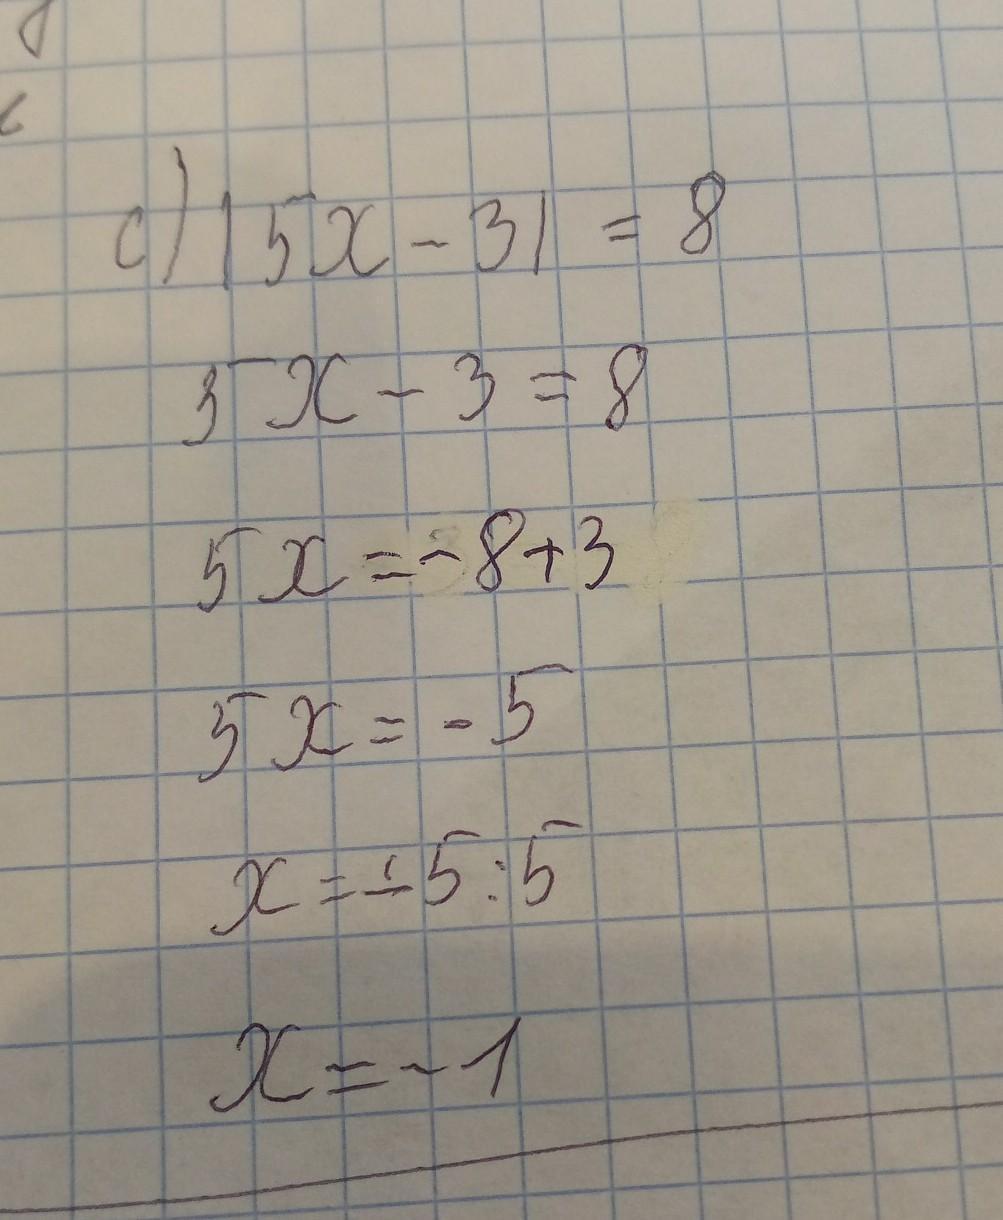 c) |5x - 3| = 8
5x - 3 = 8
5x = -8+3
5x = -5
x = -5:5
x = -1